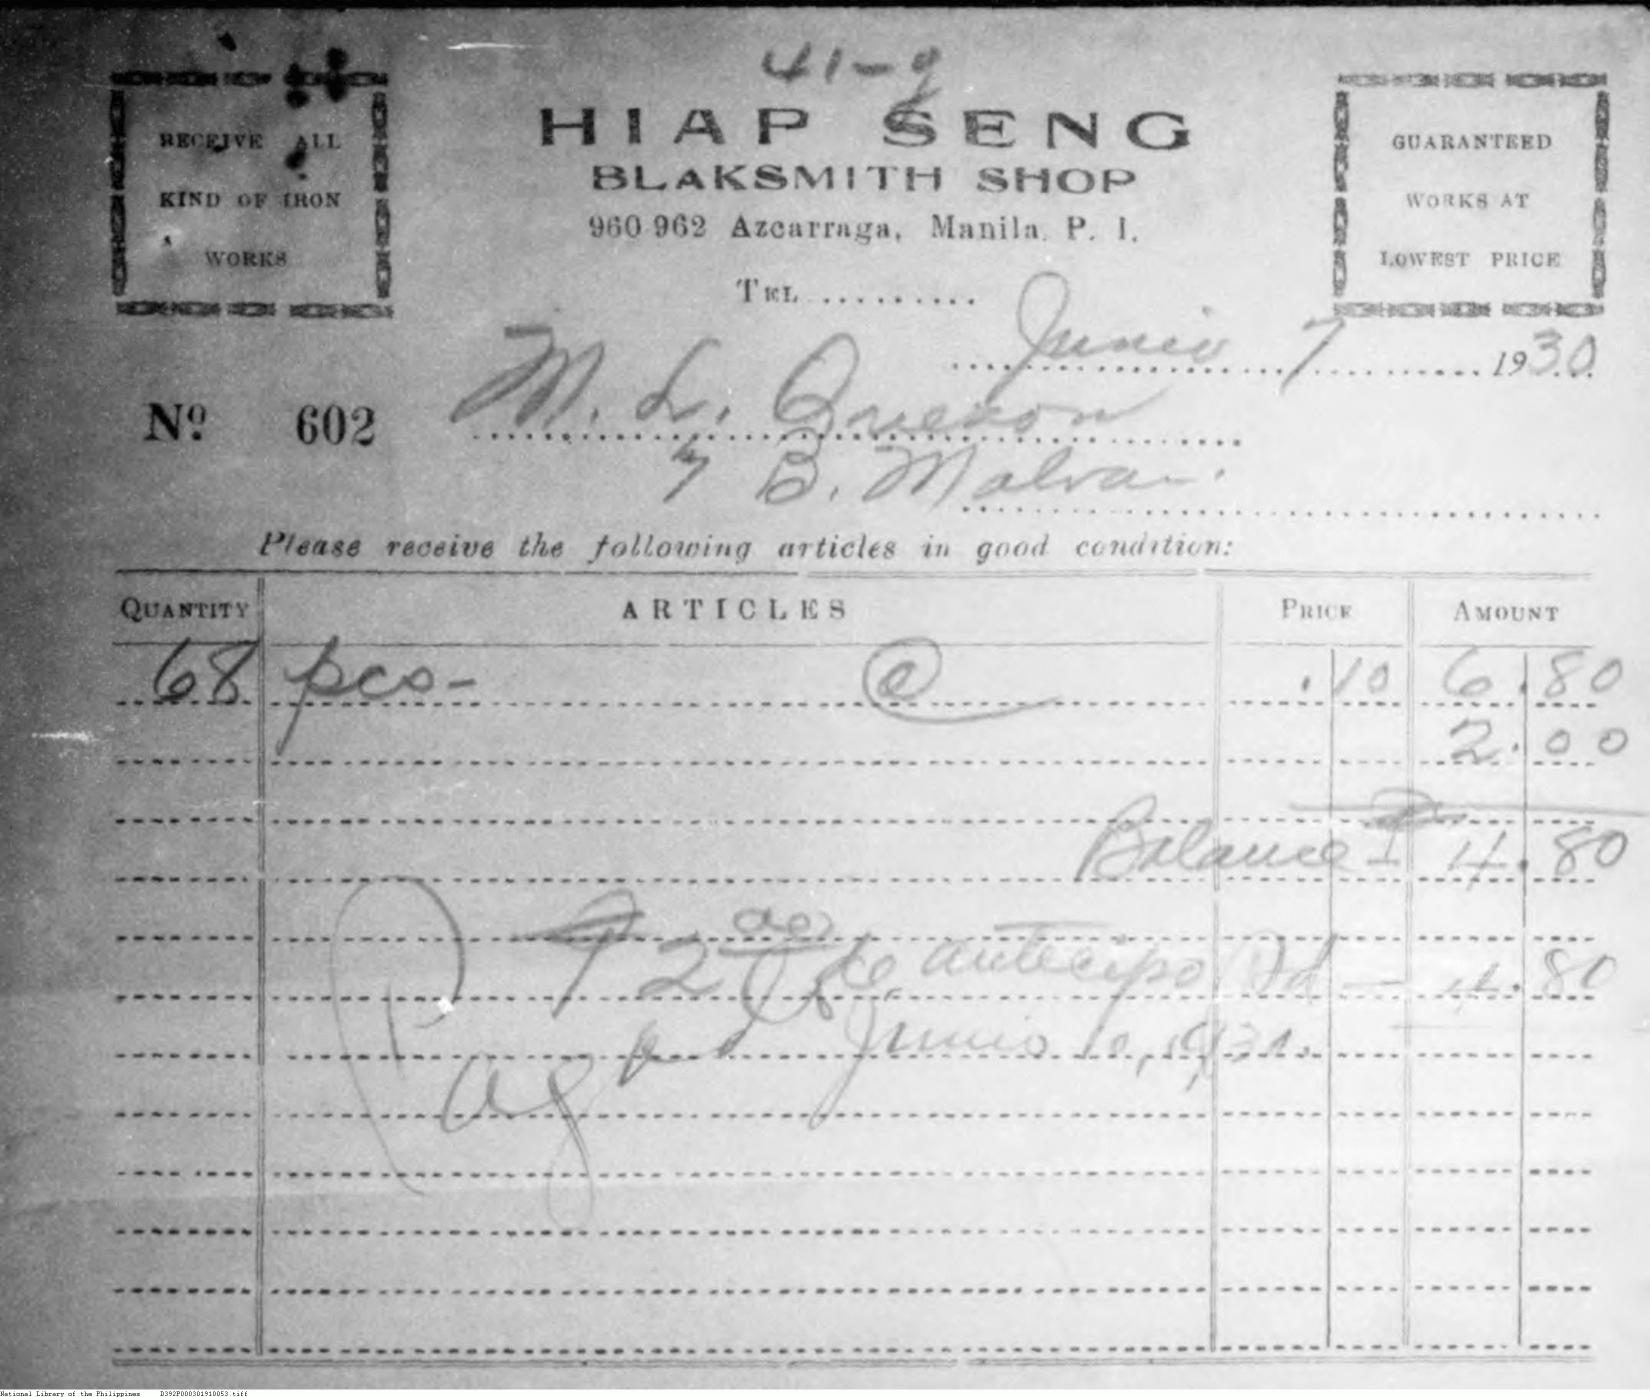 41-g
HIAP SENG
BLAKSMITH SHOP
960-962 Azcarraga, Manila. P. I.
TEL..........
RECEIVE ALL
KIND OF IRON
WORKS
GUARANTEED
WORKS AT
LOWEST PRICE
Junio 7 1930.
Nº 602 M. L. Quezon
B. Malvar.
Please receive the following articles in good condition:
QUANTITY ARTICLES PRICE AMOUNT
68 pcs- @ .10 6.80
2.00
Balance ₱ 4.80
₱2 00 de antecipo 4.80
Pagado Junio 10, 1930.
National Library of the Philippines D392P000301910053.tiff